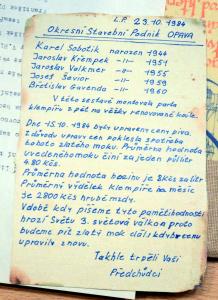 L.P. 23.10.1984
Okresní Stavební Podnik OPAVA
Karel Sobotík narozen 1944
Jaroslav Křempek -"- 1951
Jaroslav Valkmer -"- 1955
Josef Šavior -"- 1959
Břetislav Gavenda -"- 1960
V této sestavě montovala parta
klempířů plech na věžky renovované kostela
Dne 15.10.1984 byly upraveny ceny piva.
Z důvodu úpravy cen poklesla spotřeba
tohoto zlatého moku. Průměrná hodnota
uvedeného moku činí za jeden půllitr
4.80 kčs.
Průměrná hodnota hodiny je 8 kčs za litr
Průměrný výdělek klempíře za měsíc
je 2800 kčs hrubé mzdy.
V době kdy píšeme tyto pamětihodnosti
hrozí Světu 3. světová válka proto
budeme pít zlatý mok dál, i kdyby cenu
upravily znovu.
Takhle trpěli Vaši
Předchůdci